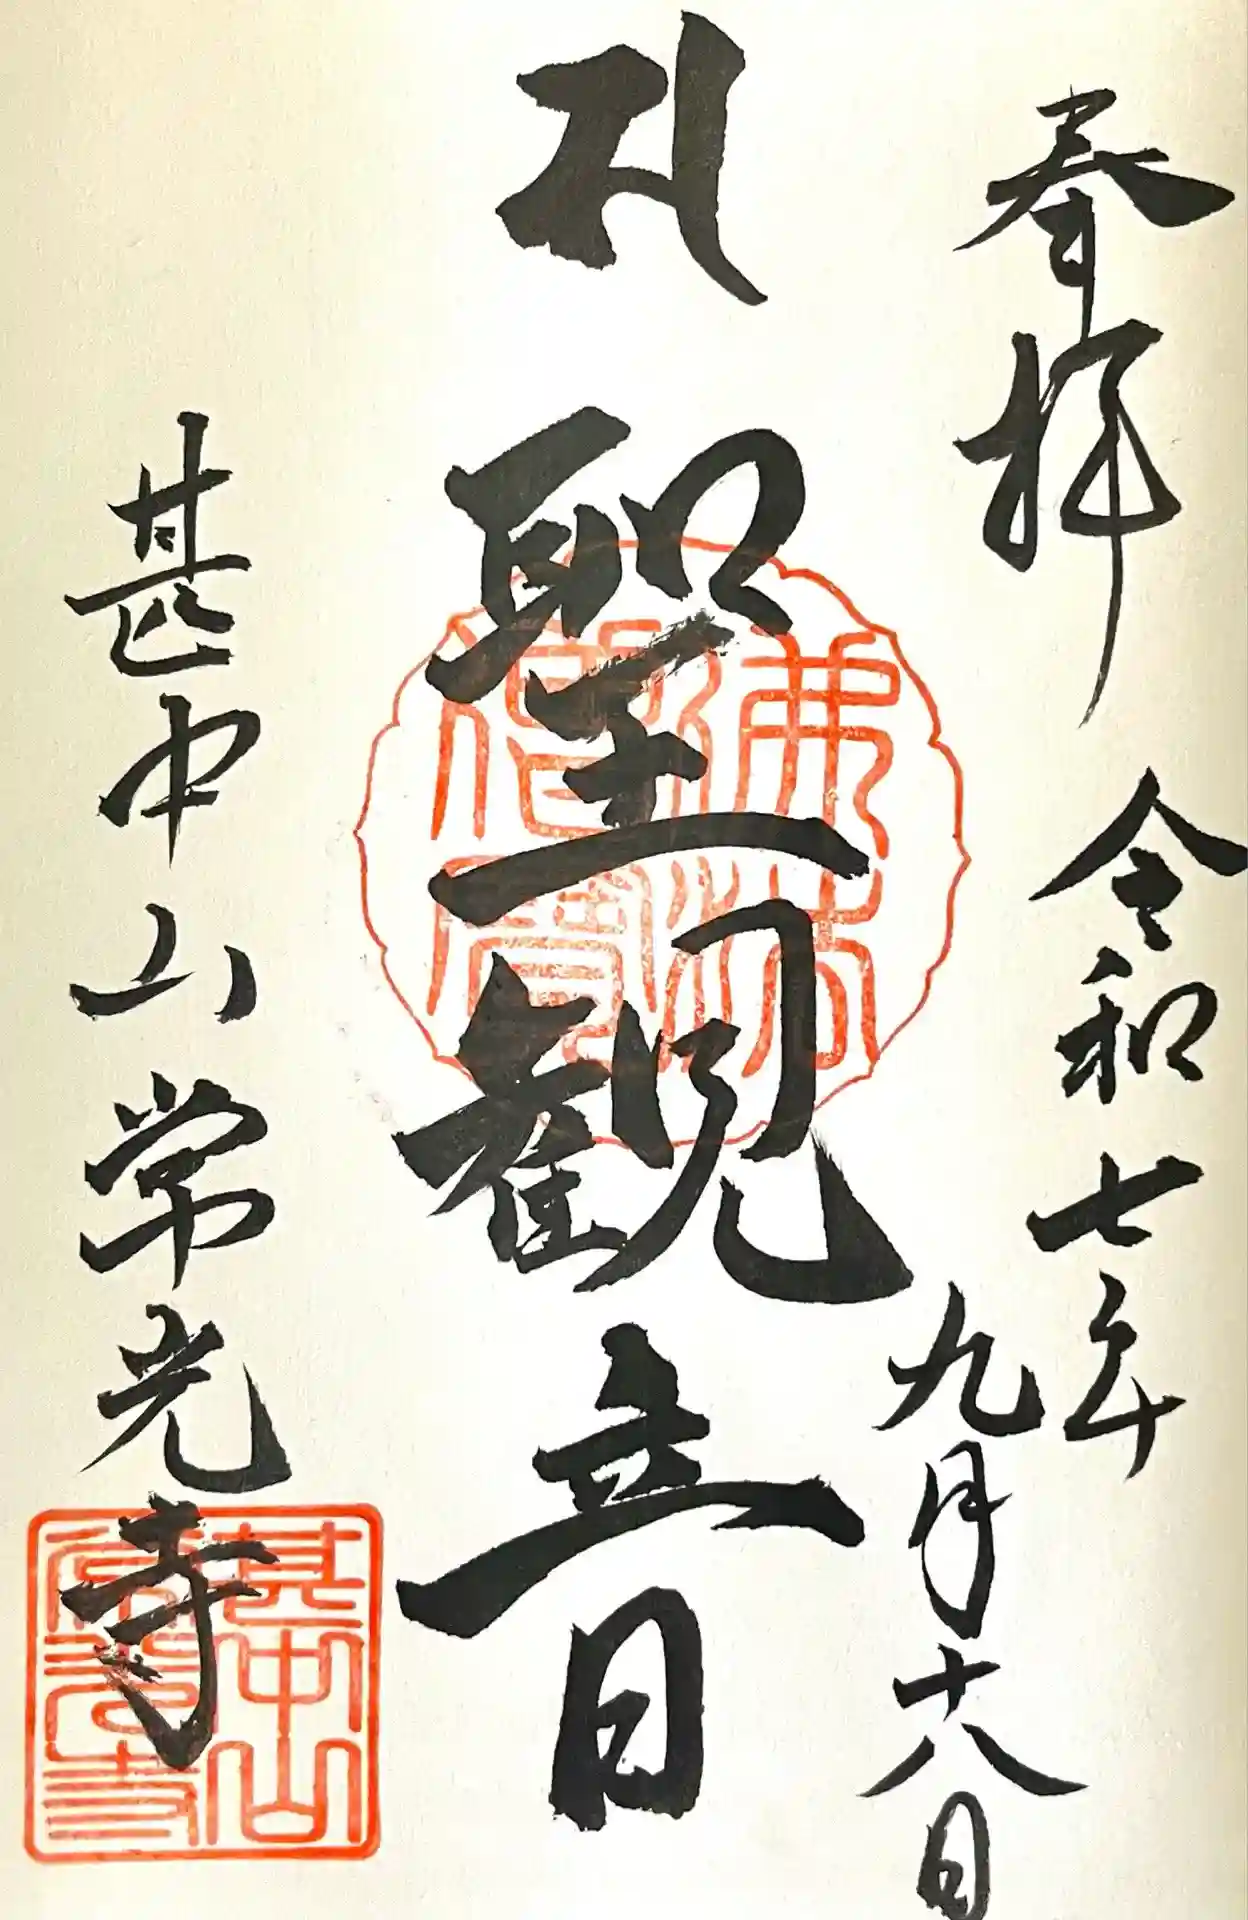 奉拝
令和七年
九月十八日
聖観音
甚中山常光寺
佛法
僧寳
甚中山
常光寺